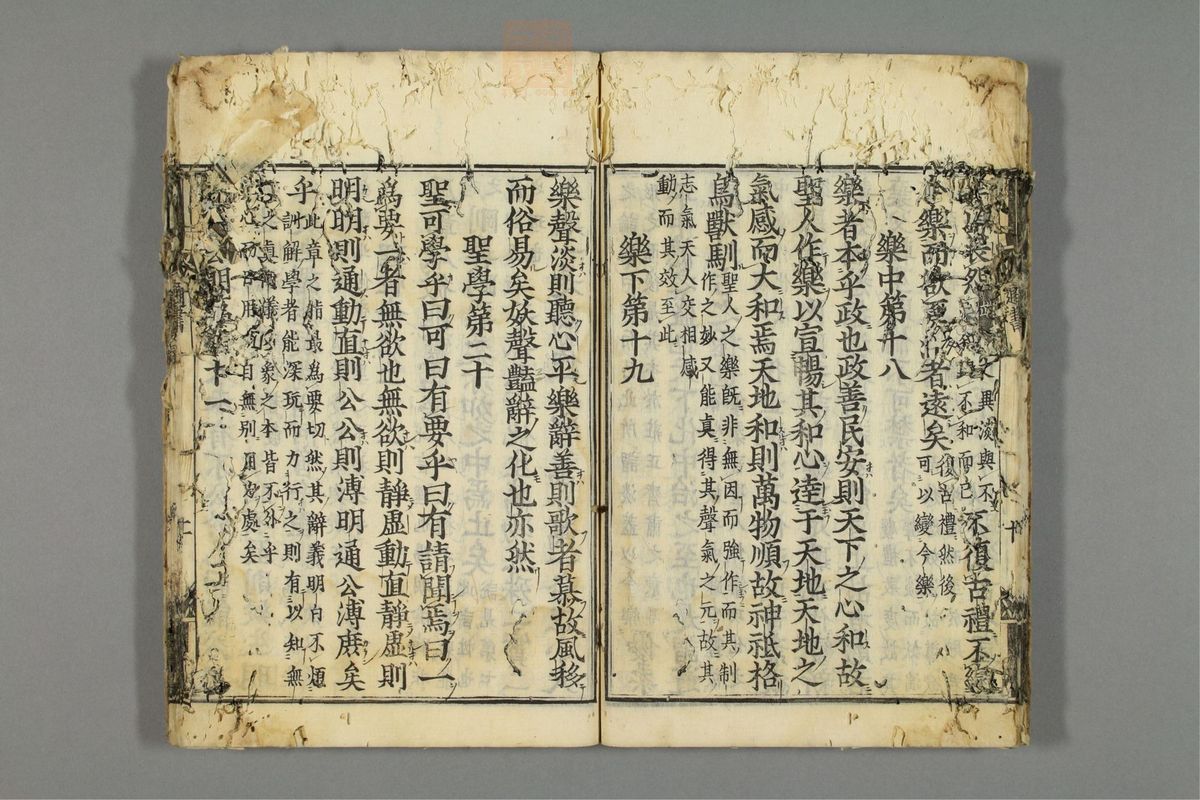 異淡與不
不和而已不復古禮不
樂而欲 者遠矣復古禮然後
可以變今樂
樂中第十八
樂者本乎政也政善民安則天下之心和故
聖人作樂以宣暢其和心逹于天地天地之
氣感而大和焉天地和則萬物順故神祗格
鳥獸馴聖人之樂旣非無因而強作而其制
作之妙又能真得其聲氣之元故其
志氣天人交相感
動而其效至此
樂下第十九
樂聲淡則聽心平樂辭善則歌者慕故風移
而俗易矣妖聲豔辭之化也亦然
聖學第二十
聖可學乎曰可曰有要乎曰有請聞焉曰一
爲要一者無欲也無欲則靜虛動直靜虛則
明明則通動直則公公則溥明通公溥庶矣
乎此章之指最爲要切然其辭義明白不煩
訓解學者能深玩而力行之則有以知無
之真 儀 象之本皆不外乎
而 自無別用 處矣
公明 十一